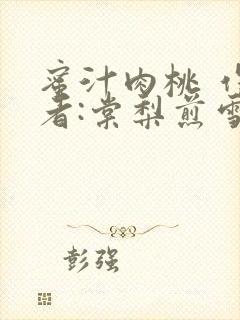 蜜汁肉桃
者:棠梨煎雪
彭强